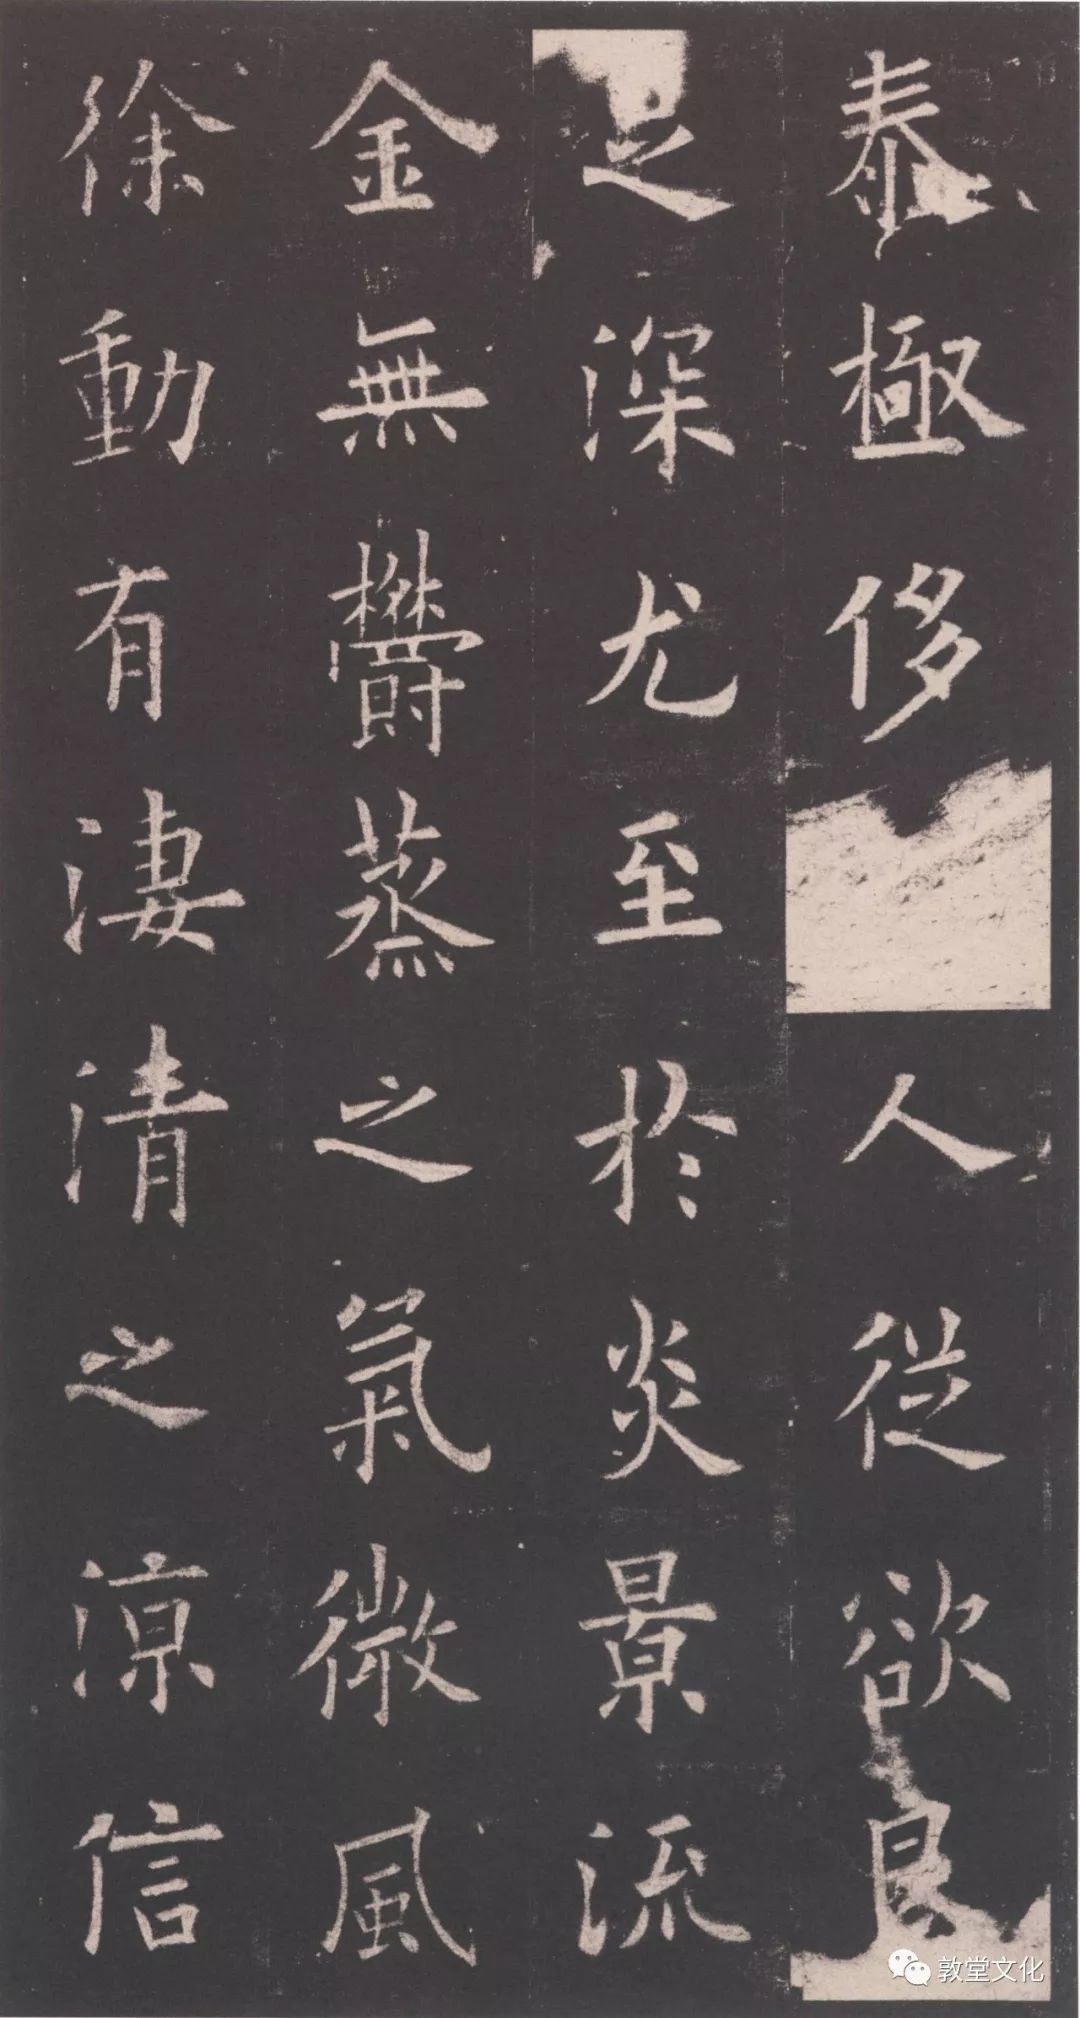 泰極侈人從欲良
足深尤至於炎景流
金無欝蒸之氣微風
徐動有淒清之涼信
敦堂文化